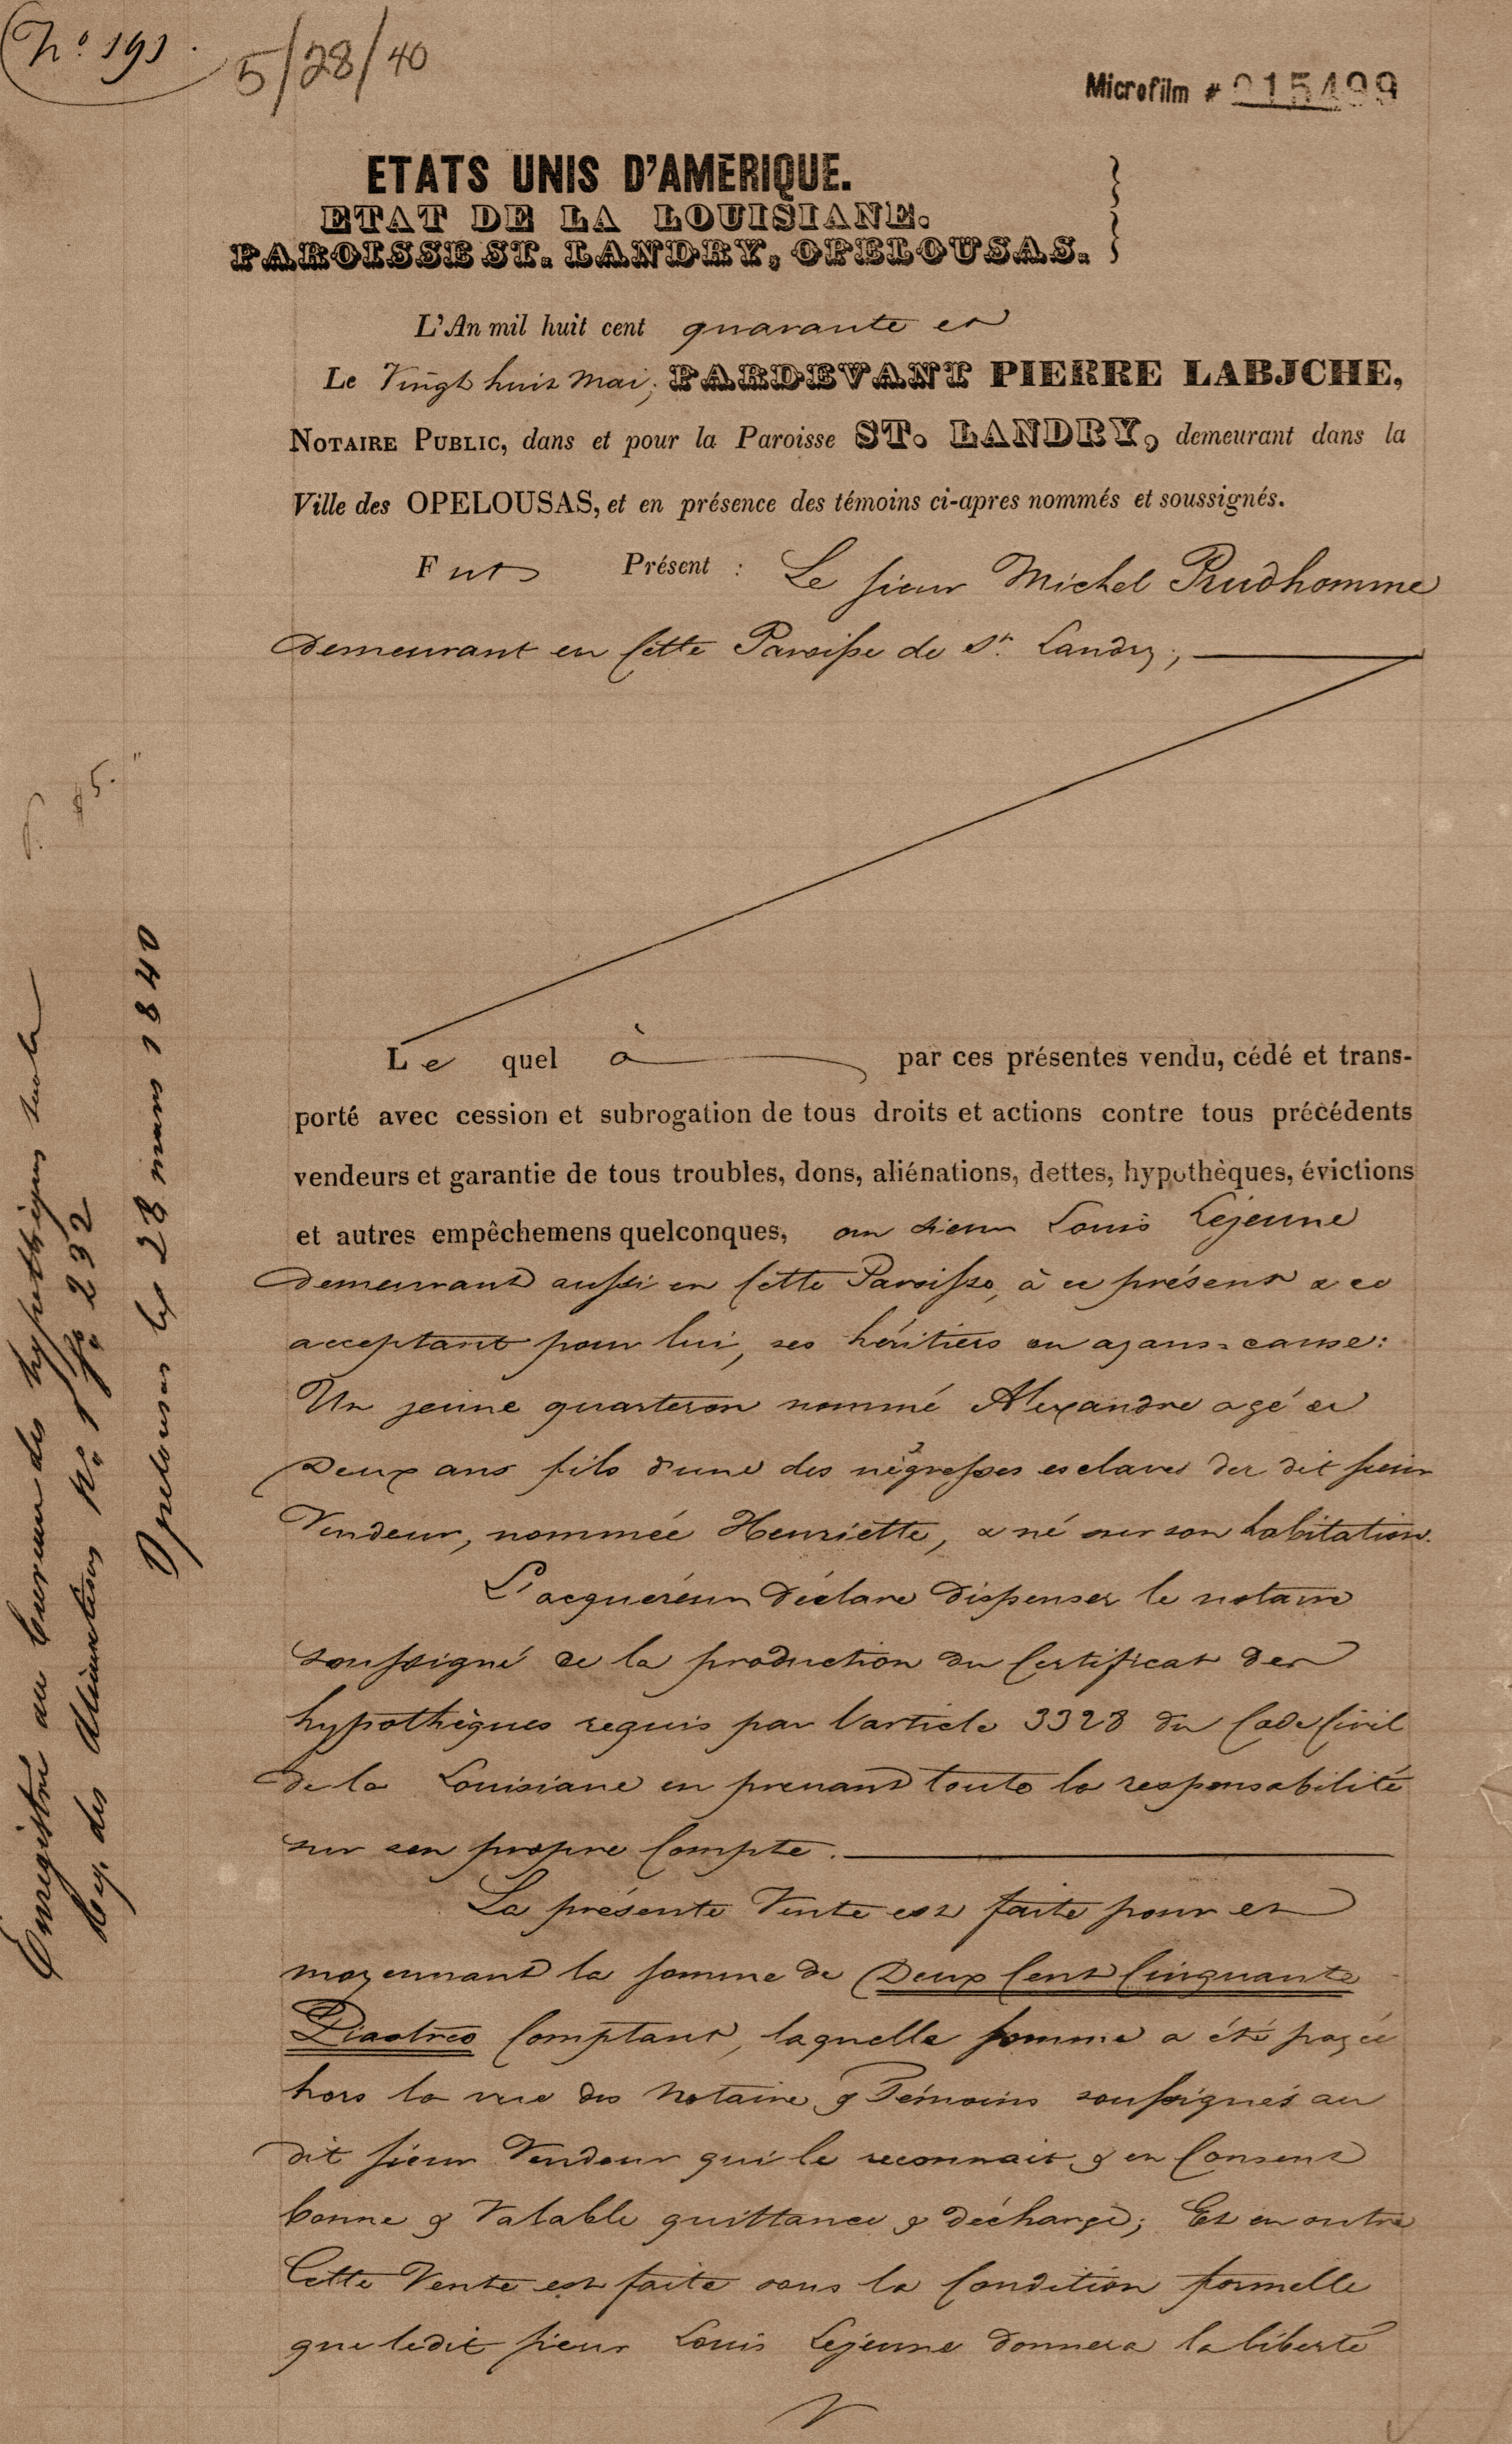 No 191.
5/28/40
Microfilm # 215499
ETATS UNIS D'AMERIQUE.
ETAT DE LA LOUISIANE.
PAROISSE ST. LANDRY, OPELOUSAS.
L'An mil huit cent quarante et
Le Vingt huit Mai, PARDEVANT PIERRE LABJCHE,
NOTAIRE PUBLIC, dans et pour la Paroisse ST. LANDRY, demeurant dans la
Ville des OPELOUSAS, et en présence des témoins ci-apres nommés et soussignés.
Fut Présent : Le sieur Michel Prudhomme
demeurant en Cette Paroisse de St. Landry,
Le quel à par ces présentes vendu, cédé et trans-
porté avec cession et subrogation de tous droits et actions contre tous précédents
vendeurs et garantie de tous troubles, dons, aliénations, dettes, hypothèques, évictions
et autres empêchemens quelconques, au sieur Louis Lejeune
demeurant aussi en Cette Paroisse, à ce présent & ce
acceptant pour lui, ses héritiers ou ayans-cause:
Un jeune quarteron nommé Alexandre agé de
Deux ans fils d'une des négresses esclaves du dit sieur
Vendeur, nommée Henriette, & né sur son habitation.
L'acquéreur déclare dispenser le notaire
soussigné de la production du Certificat des
hypothèques requis par l'article 3328 du Code Civil
de la Louisiane en prenant toute la responsabilité
sur son propre Compte.
La présente Vente est faite pour et
moyennant la somme de Deux Cent Cinquante
Piastres Comptant, laquelle somme a été payée
hors la vue des Notaire & Témoins soussignés au
dit sieur Vendeur qui le reconnait & en Consent
bonne & Valable quittance & décharge; Et en outre
Cette Vente est faite sous la Condition formelle
que ledit sieur Louis Lejeune donnera la liberté
$5."
Enregistré au bureau des hypothèques
Reg. des Alienations No. 1 fo. 232
Opelousas les 28 mars 1840